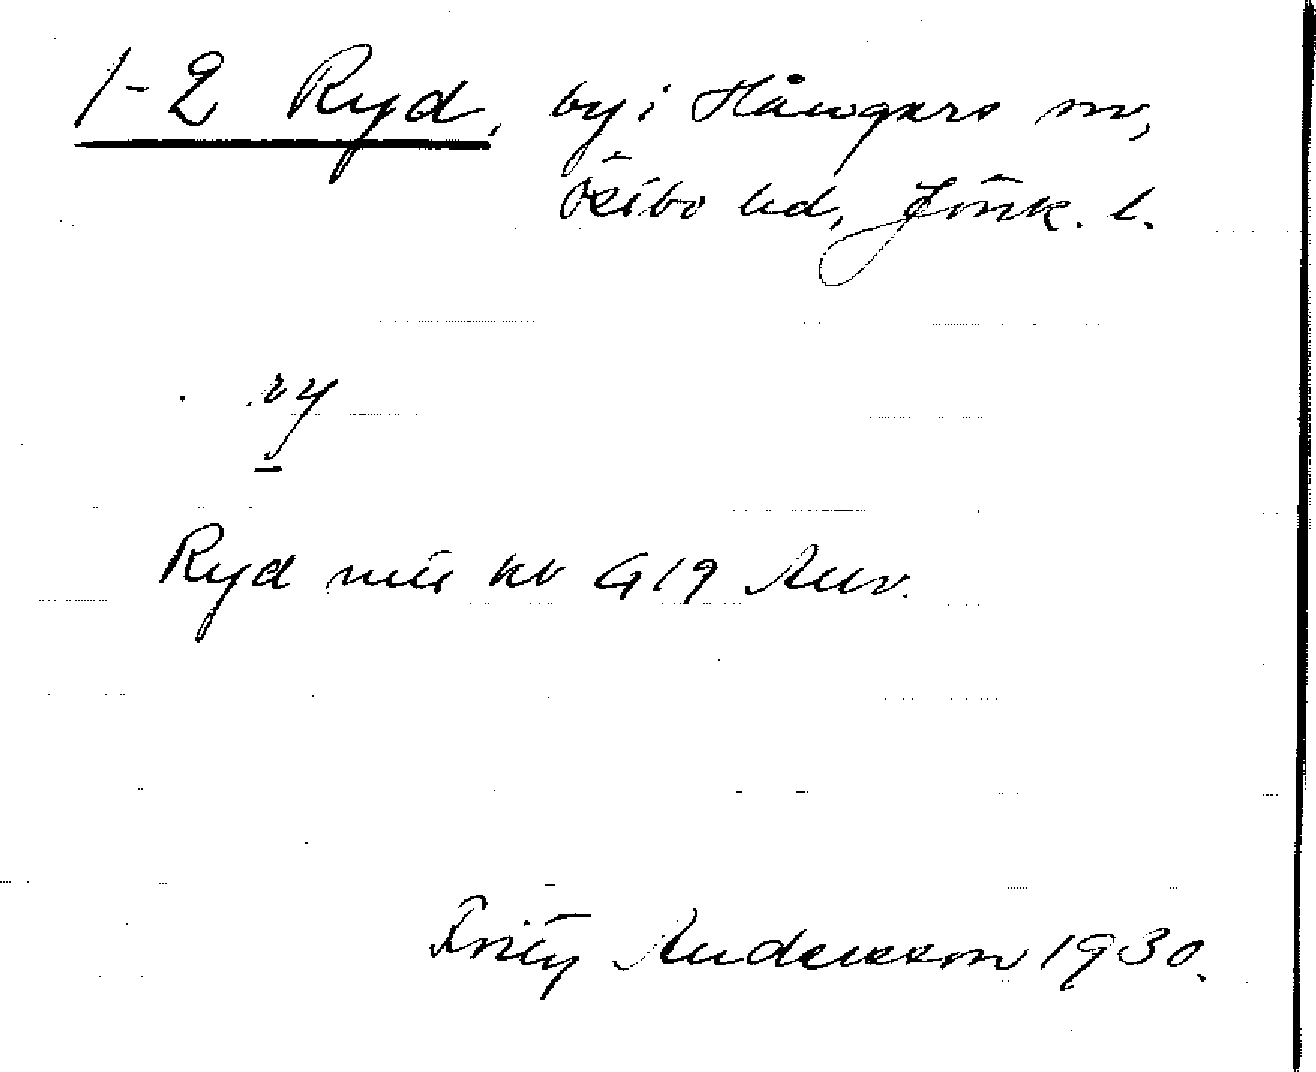 1-2 Ryd, by i Hånger sn,
Östbo hd, Jönk. l.
ry
Ryd
Fritz Andersson 1930.